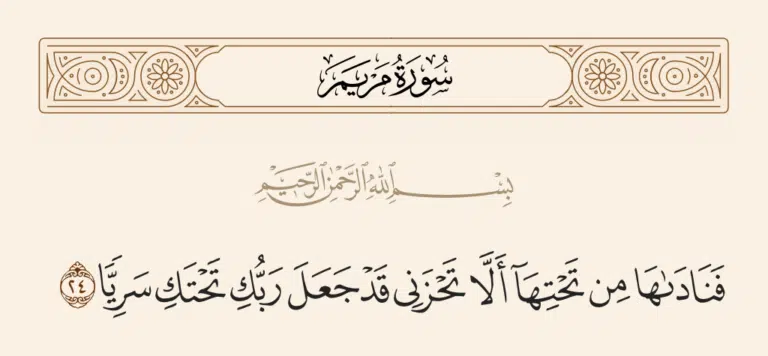 سُورَةُ مَرْيَمَ
بِسْمِ ٱللَّهِ ٱلرَّحْمَٰنِ ٱلرَّحِيمِ
فَنَادَىٰهَا مِن تَحْتِهَآ أَلَّا تَحْزَنِى قَدْ جَعَلَ رَبُّكِ تَحْتَكِ سَرِيًّا ٢٤